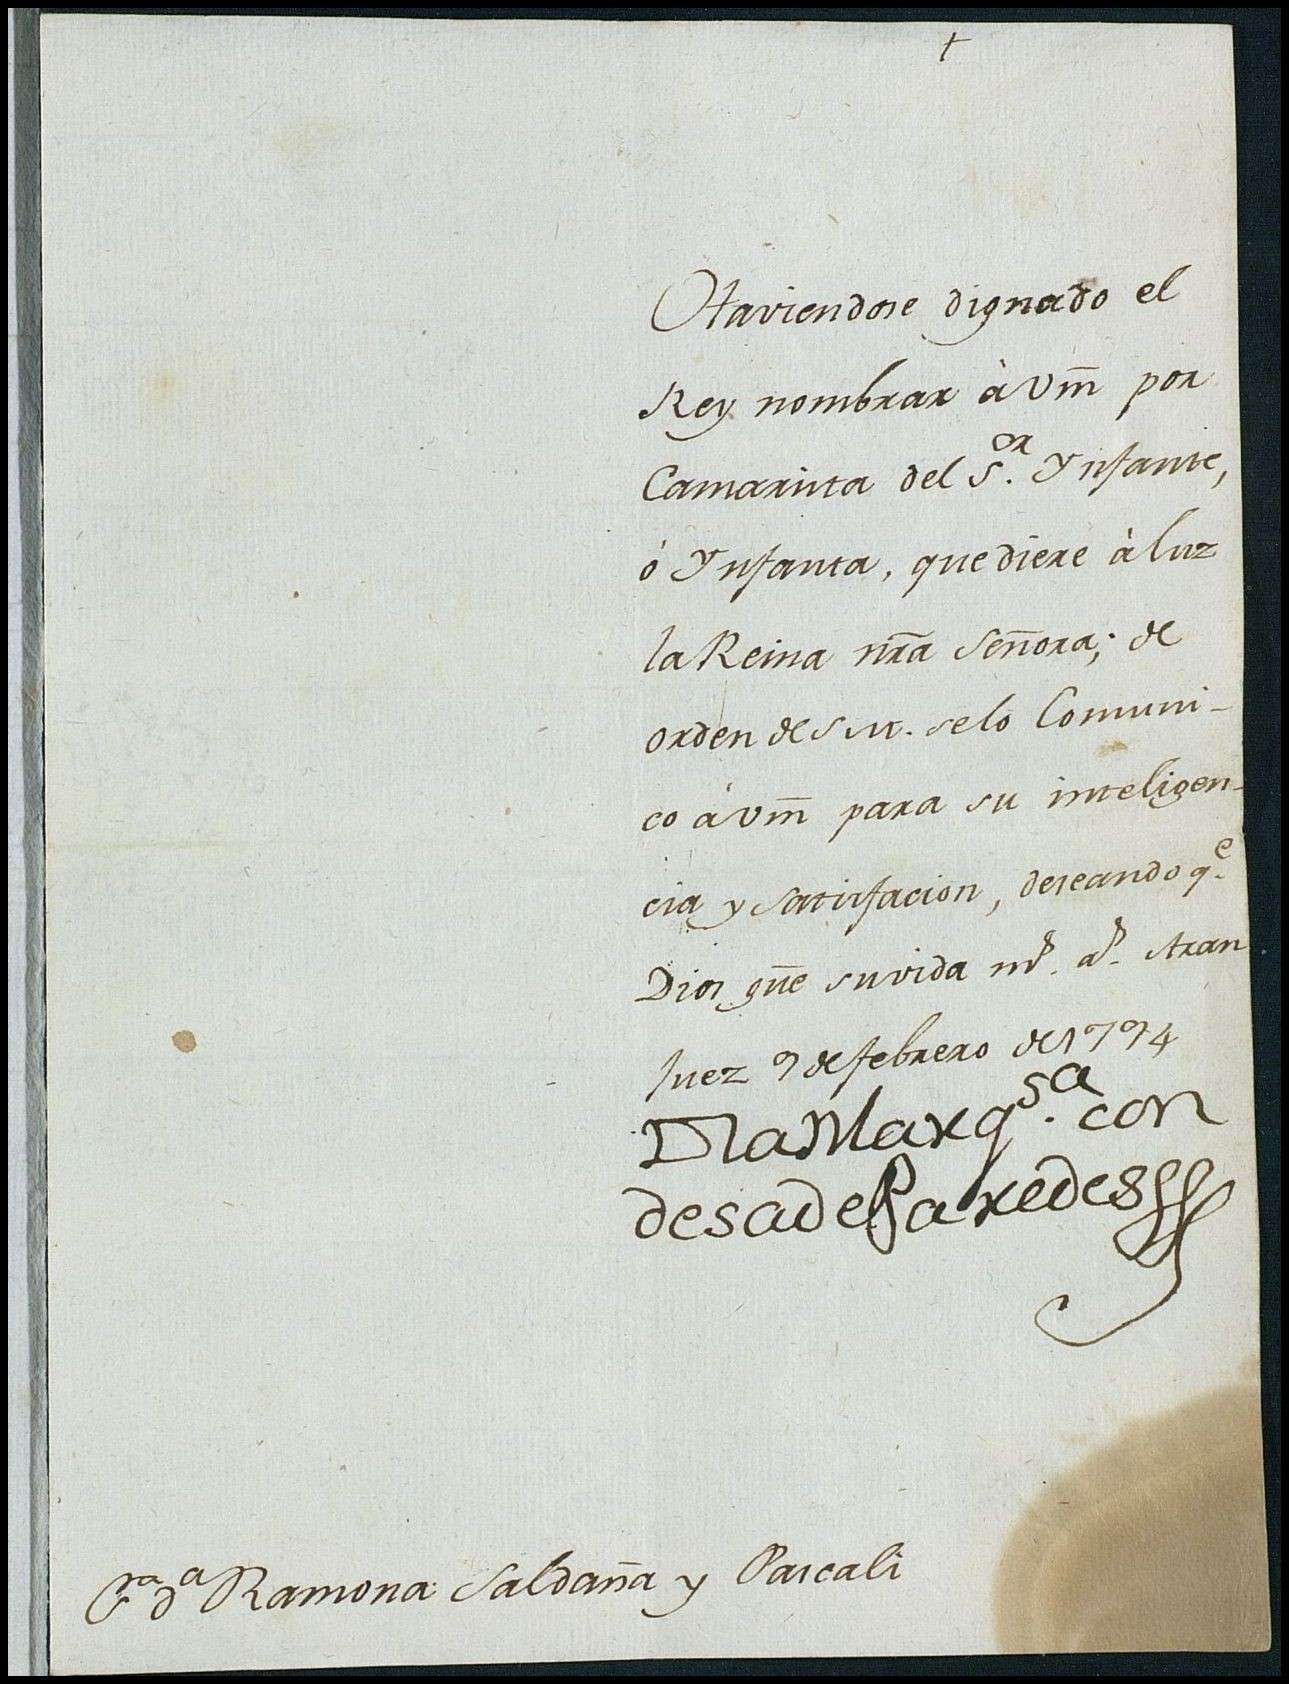 +
Haviendose dignado el
Rey nombrar à Vm̃ por
Camarista del S.or Ynfante,
ó Ynfanta, que diere à luz
la Reina nr̃a Señora; de
orden de S M. se lo Comuni-
co à Vm̃ para su inteligen-
cia y satisfacion, deseando q.e
Dios gũe su vida m.s a.s Aran
juez 9 de febrero de 1794
La Marq.sa con
desa de Paredes
S.ra d.a Ramona Saldaña y Pascali